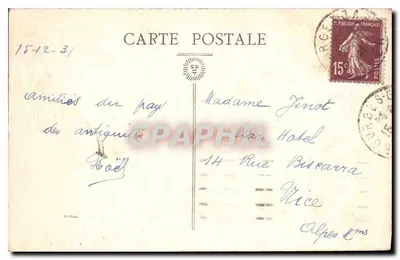 CARTE POSTALE
15-12-31
amitiés du pays
des antiquités
Noël
Madame Jinot
Hotel
14 Rue Biscarra
Nice
Alpes Mmes
15c
POSTES